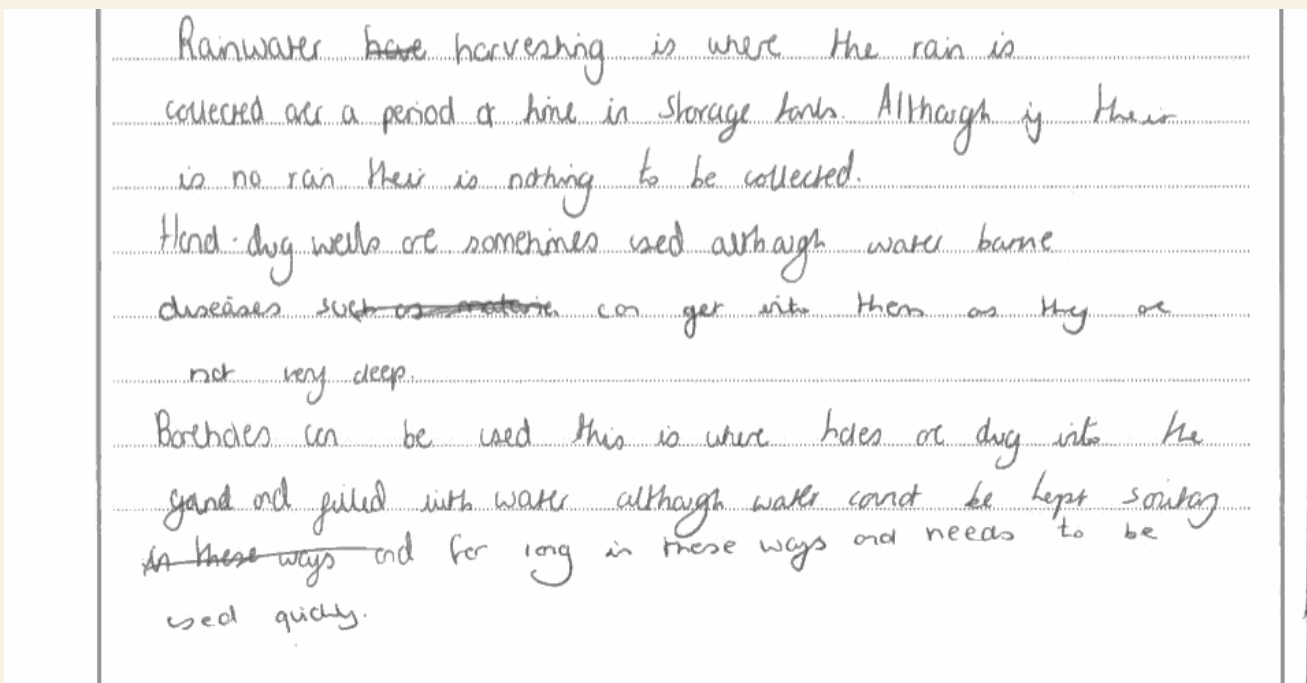 Rainwater have harvesting is where the rain is
collected over a period of time in storage tanks. Although if their
is no rain their is nothing to be collected.
Hand-dug wells are sometimes used although water borne
diseases such as malaria can get into them as they are
not very deep.
Boreholes can be used this is where holes are dug into the
ground and filled with water although water cannot be kept sanitary
in these ways and for long in these ways and needs to be
used quickly.